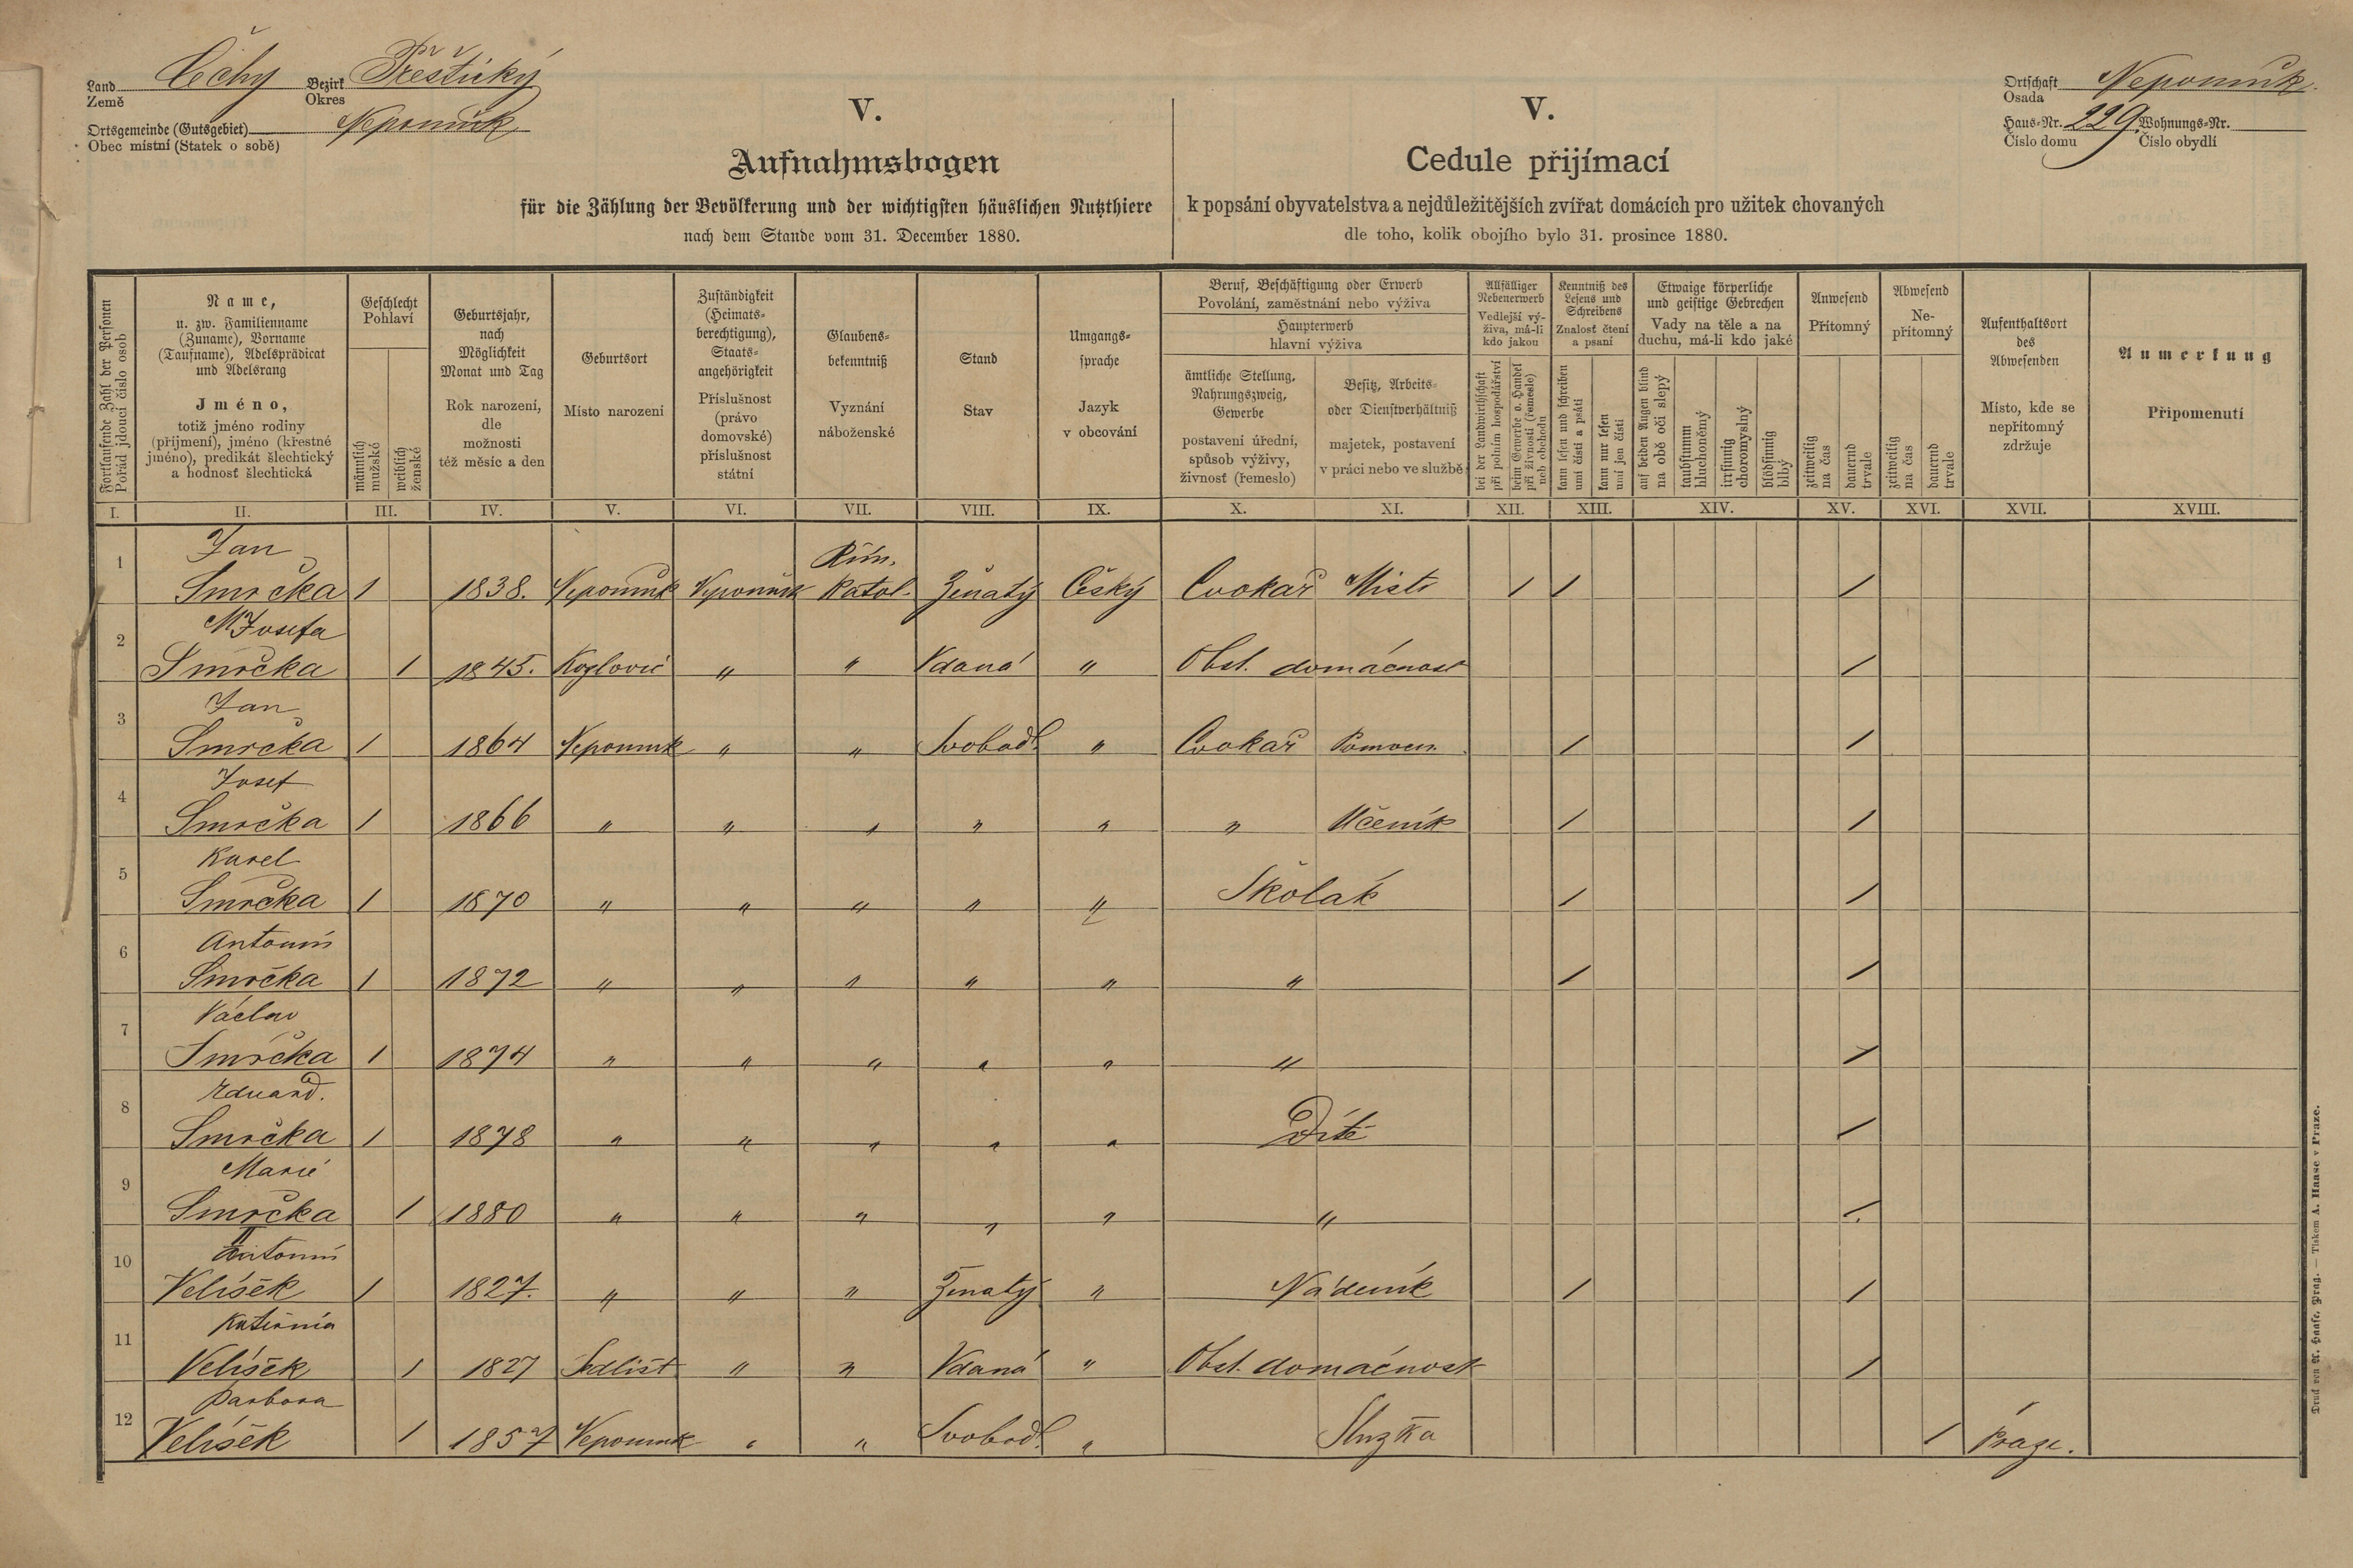 Land Čechy Bezirk Přeštický
Země Okres
Ortsgemeinde (Gutsgebiet) Nepomuk
Obec místní (Statek o sobě)
V.
Aufnahmsbogen
für die Zählung der Bevölkerung und der wichtigsten häuslichen Nutzthiere
nach dem Stande vom 31. December 1880.
V.
Cedule přijímací
k popsání obyvatelstva a nejdůležitějších zvířat domácích pro užitek chovaných
dle toho, kolik obojího bylo 31. prosince 1880.
Ortschaft Nepomuk.
Osada
Haus-Nr. 229. Wohnungs-Nr.
Číslo domu Číslo obydlí
Fortlaufende Zahl der Personen
Pořád jdoucí číslo osob
Name,
u. zw. Familienname
(Zuname), Vorname
(Taufname), Adelsprädicat
und Adelsrang
Jméno,
totiž jméno rodiny
(příjmení), jméno (křestné
jméno), predikát šlechtický
a hodnosť šlechtická
Geschlecht
Pohlaví
männlich
mužské
weiblich
ženské
Geburtsjahr,
nach
Möglichkeit
Monat und Tag
Rok narození,
dle
možnosti
též měsíc a den
Geburtsort
Místo narození
Zuständigkeit
(Heimats-
berechtigung),
Staats-
angehörigkeit
Příslušnost
(právo
domovské)
příslušnost
státní
Glaubens-
bekenntniß
Vyznání
náboženské
Stand
Stav
Umgangs-
sprache
Jazyk
v obcování
Beruf, Beschäftigung oder Erwerb
Povolání, zaměstnání nebo výživa
Haupterwerb
hlavní výživa
ämtliche Stellung,
Nahrungszweig,
Gewerbe
postavení úřední,
spůsob výživy,
živnosť (řemeslo)
Besitz, Arbeits-
oder Dienstverhältniß
majetek, postavení
v práci nebo ve službě
Allfälliger
Nebenerwerb
Vedlejší vý-
živa, má-li
kdo jakou
bei der Landwirthschaft
při polním hospodářství
beim Gewerbe o. Handel
při živnosti (řemesle)
neb obchodu
Kenntniß des
Lesens und
Schreibens
Znalosť čtení
a psaní
kann lesen und schreiben
umí čísti a psáti
kann nur lesen
umí jen čísti
Etwaige körperliche
und geistige Gebrechen
Vady na těle a na
duchu, má-li kdo jaké
auf beiden Augen blind
na obě oči slepý
taubstumm
hluchoněmý
irrsinnig
choromyslný
blödsinnig
blbý
Anwesend
Přítomný
zeitweilig
na čas
dauernd
trvale
Abwesend
Ne-
přítomný
zeitweilig
na čas
dauernd
trvale
Aufenthaltsort
des
Abwesenden
Místo, kde se
nepřítomný
zdržuje
Anmerkung
Připomenutí
I. II. III. IV. V. VI. VII. VIII. IX. X. XI. XII. XIII. XIV. XV. XVI. XVII. XVIII.
1 Jan Řím.
Smrčka 1 1838. Nepomuk Nepomuk Katol. Ženatý Český Cvokař Mistr / / /
2 M Josefa
Smrčka 1 1845. Kozlovic " " Vdaná " Obst. domácnost /
3 Jan
Smrčka 1 1864 Nepomuk " " Svobod. " Cvokař Pomocn. / /
4 Josef
Smrčka 1 1866 " " " " " " Učeník / /
5 Karel
Smrčka 1 1870 " " " " " Školák / /
6 Antonín
Smrčka 1 1872 " " " " " " / /
7 Václav
Smrčka 1 1874 " " " " " " /
8 Eduard.
Smrčka 1 1878 " " " " " Dítě /
9 Marie
Smrčka 1 1880 " " " " " " /
II
10 Antonín
Velíšek 1 1827. " " " Ženatý " Nádeník / /
11 Kateřina
Velíšek 1 1827 Sedlišt " " Vdaná " Obst. domácnost /
12 Barbora
Velíšek 1 1857 Nepomuk " " Svobod. " Služka / Praze.
Druck von A. Haase, Prag. — Tiskem A. Haase v Praze.